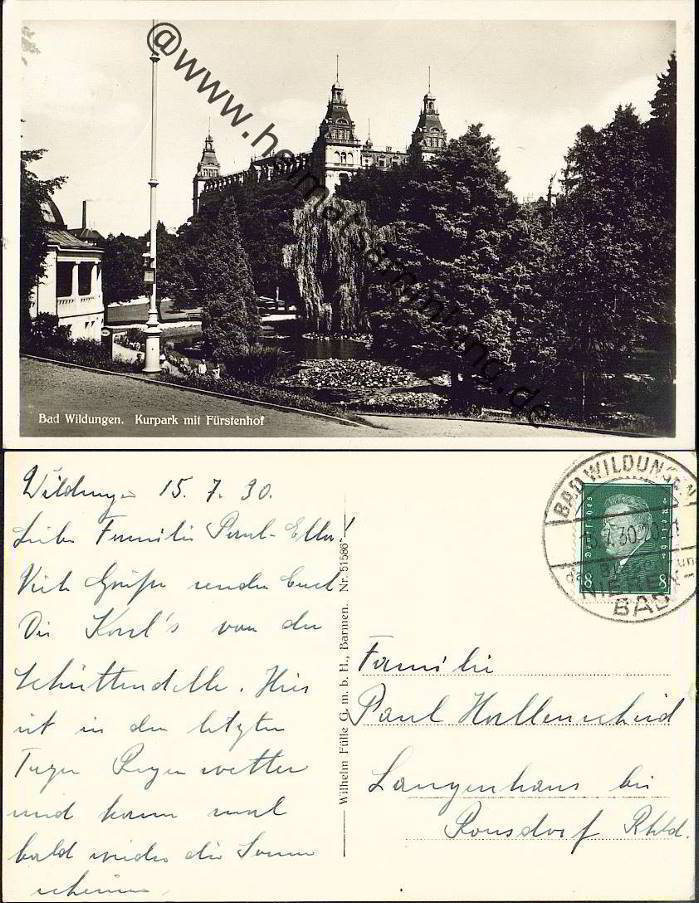 @www.heimatsammlung.de
Bad Wildungen. Kurpark mit Fürstenhof
Wildungen 15. 7. 30.
Liebe Familie Paul-Ella!
Viele Grüße senden Euch
Die Karl's von der
Schüttendelle. Hier
ist in den letzten
Tagen Regenwetter
und kann mal
bald wieder die Sonne
scheinen.
Wilhelm Fülle G. m. b. H., Barmen. Nr. 51586
BAD WILDUNGEN
15.7.30.20-21
NIEREN
BAD
8 8
Familie
Paul Hallenscheid
Langenhaus bei
Ronsdorf Rhld.